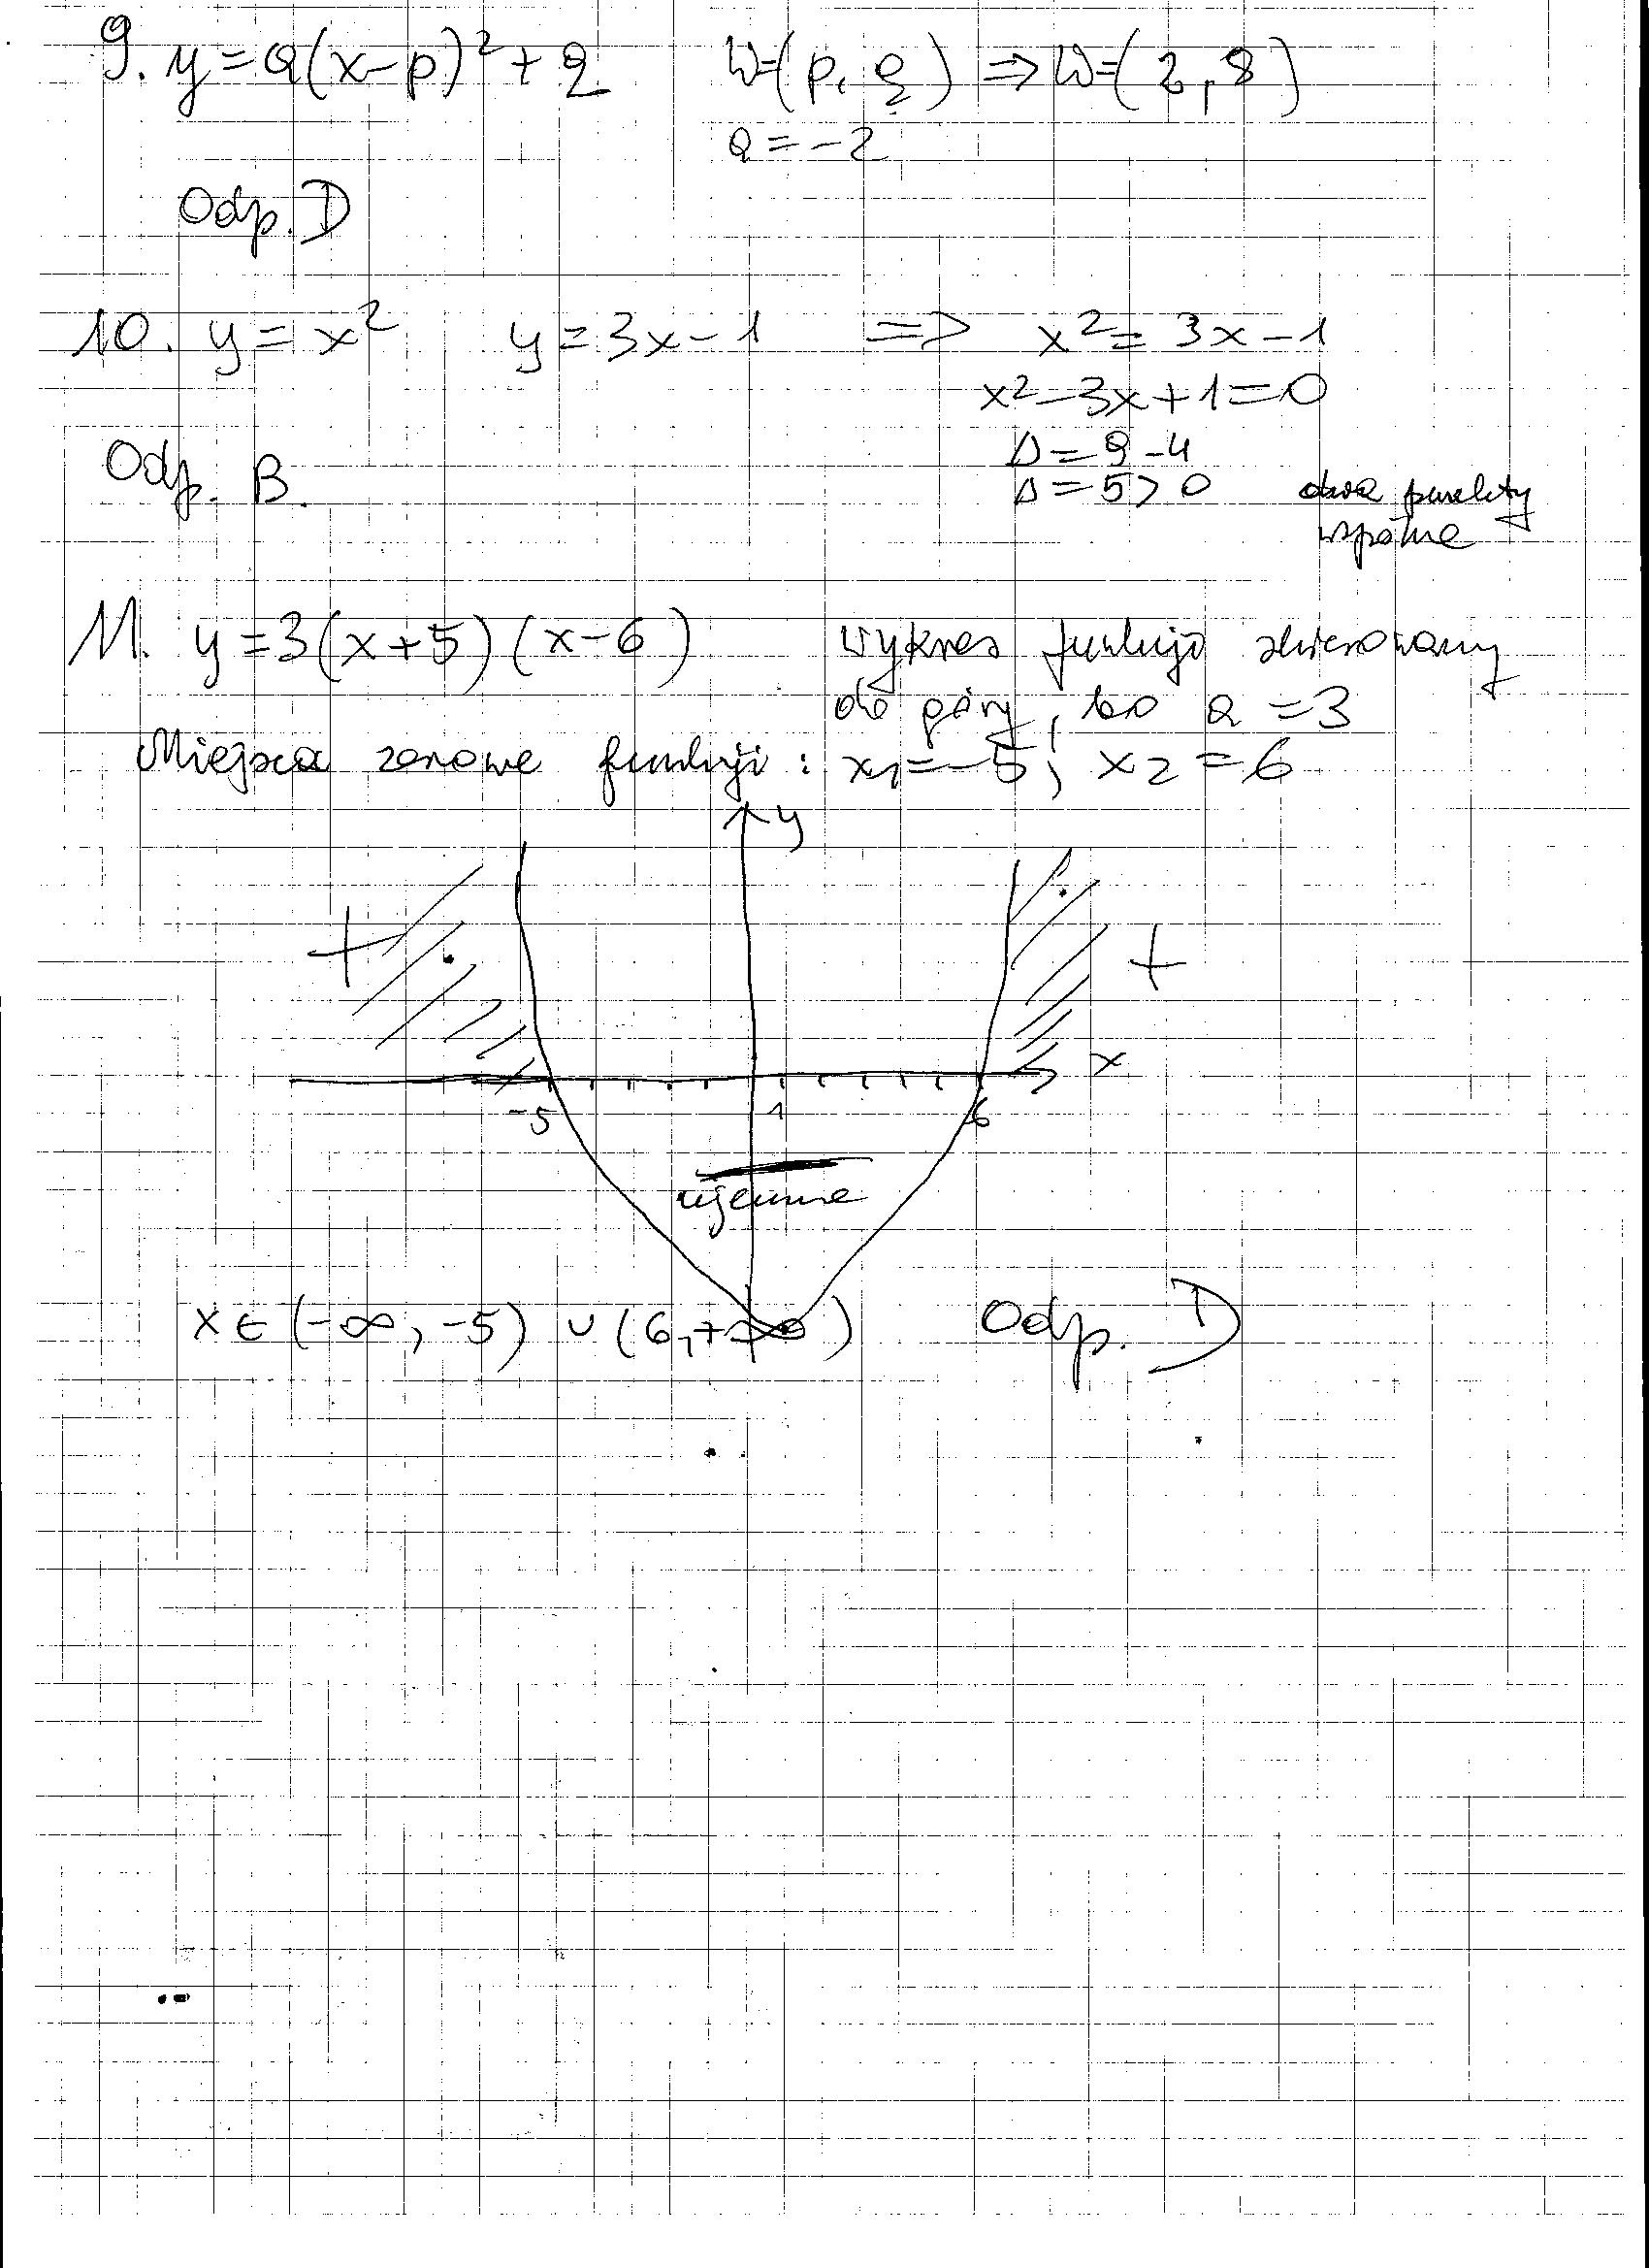 9. y = a(x-p)² + q W=(p, q) ⇒ W=(2, 8)
a = -2
Odp. D
10. y = x² y = 3x - 1 => x² = 3x - 1
x² - 3x + 1 = 0
Δ = 9 - 4
Odp. B.
Δ = 5 > 0 dwa punkty
wspólne
11. y = 3(x+5)(x-6) wykres funkcji skierowany
do góry, bo a = 3
Miejsca zerowe funkcji: x₁ = -5; x₂ = 6
y
+ +
x
-5 1 6
ujemne
x ∈ (-∞, -5) ∪ (6, +∞) Odp. D